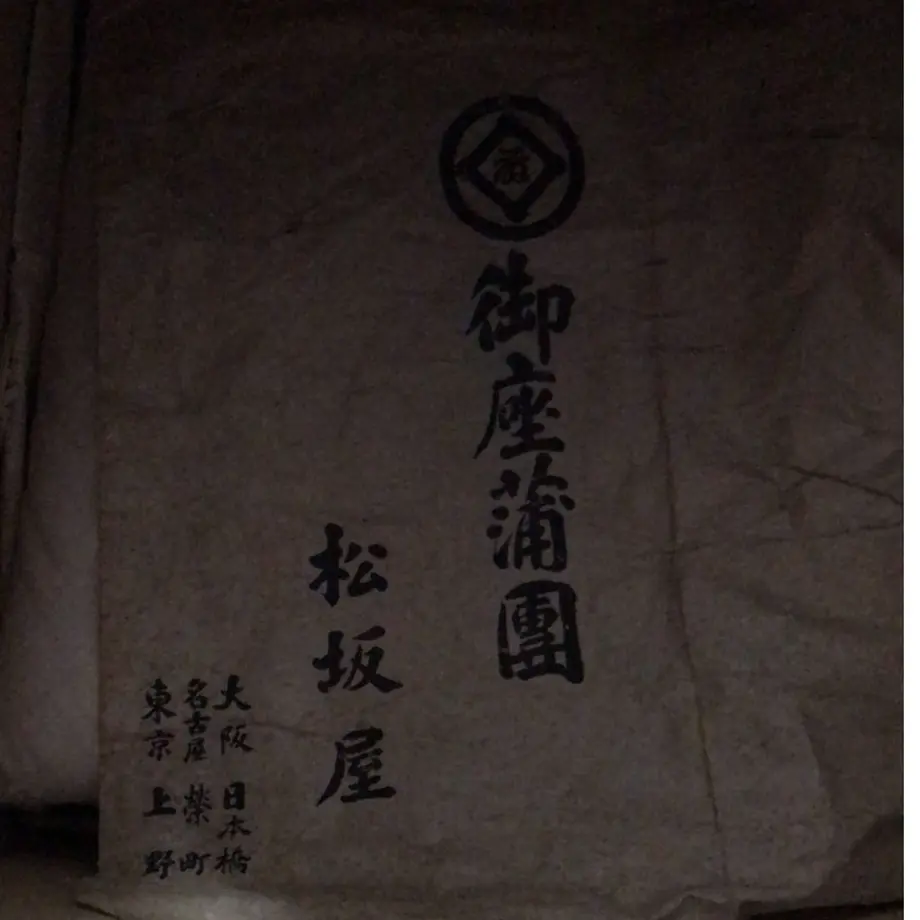 御座蒲團
松坂屋
大阪 日本橋
名古屋 榮町
東京 上野